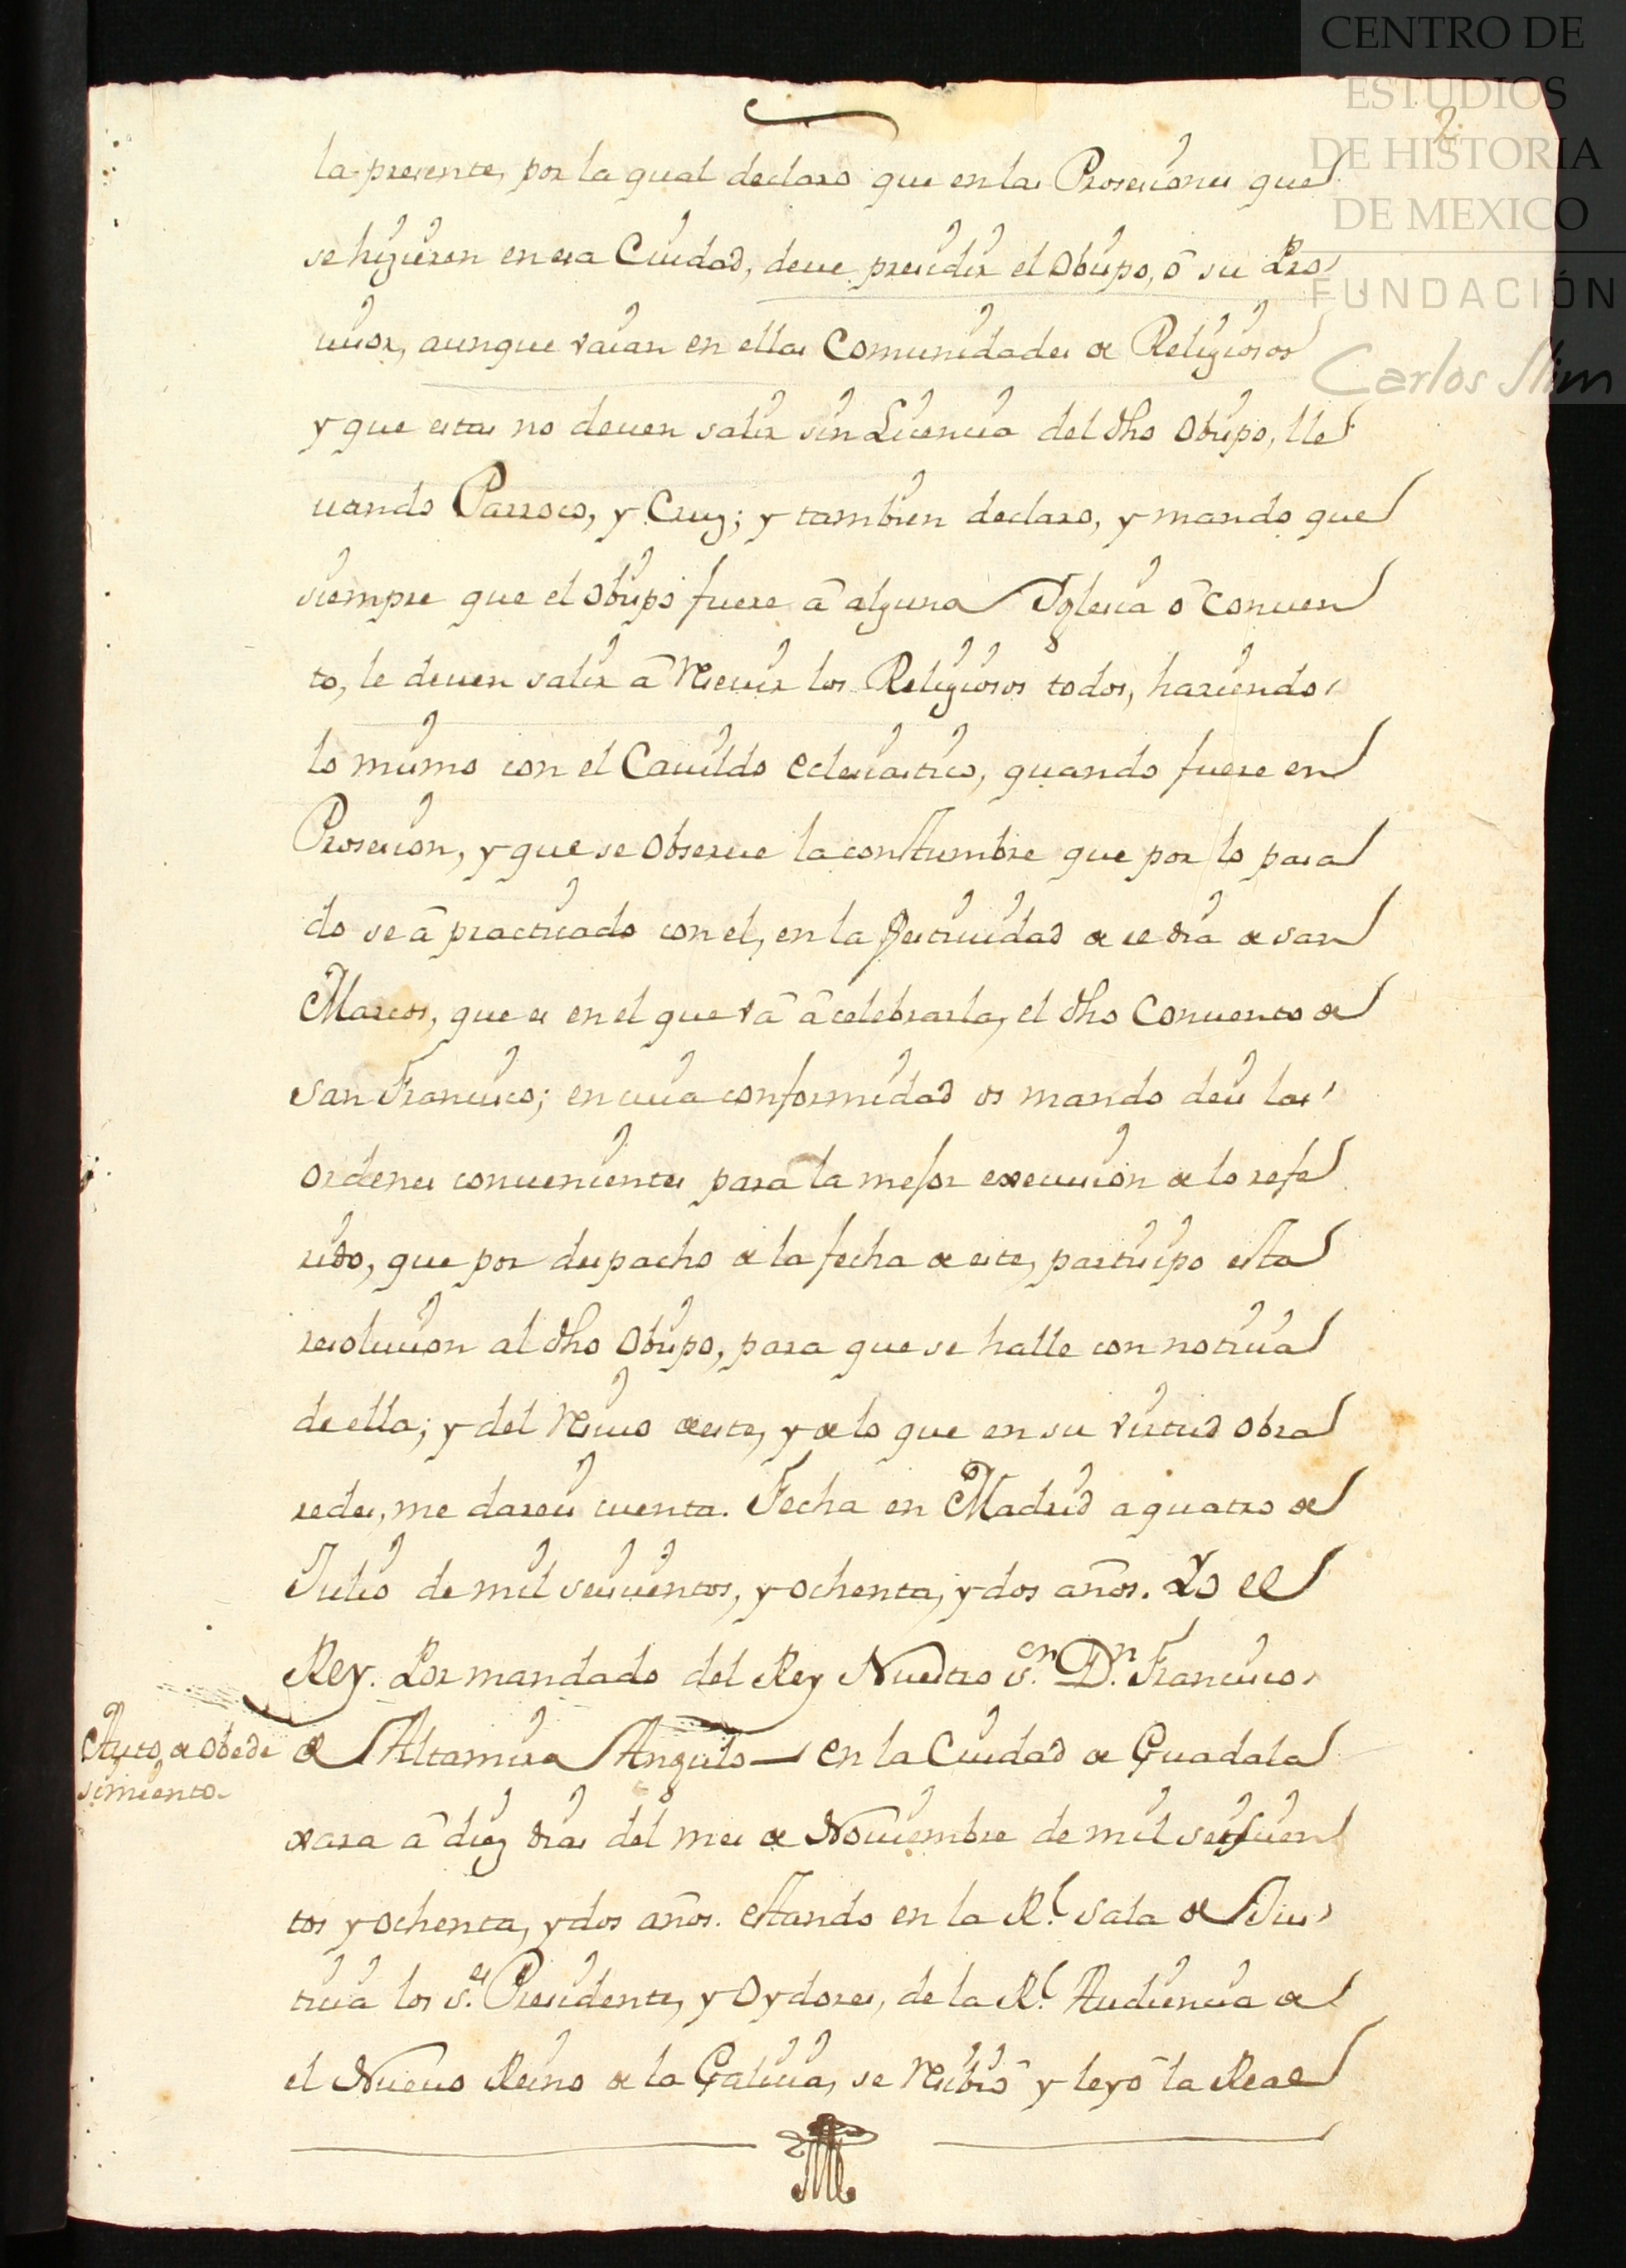 CENTRO DE
ESTUDIOS
DE HISTORIA
DE MEXICO
FUNDACIÓN
Carlos Slim
2
la presente, por la qual declaro que en las Prosesiones que
se hizieren en esa Ciudad, deue presidir el Obispo, ô su Pro
uisor, aunque vaian en ellas Comunidades de Religiosos
y que estas no deuen salir sin Licencia del dho Obispo, lle
uando Parroco, y Cruz; y tambien declaro, y mando que
siempre que el Obispo fuere â alguna Iglesia ô Conuen
to, le deuen salir â reciuir los Religiosos todos, haziendo
lo mismo con el Cauildo eclesiastico, quando fuere en
Prosesion, y que se observe la constumbre que por lo pasa
do se â practicado con el, en la festiuidad de el dia de san
Marcos, que es en el que vâ â celebrarla, el dho Conuento de
san Francisco; en cuia conformidad os mando deis las
ordenes conuenientes para la mejor execucion de lo refe
rido, que por despacho de la fecha de este, participo esta
resolucion al dho Obispo, para que se halle con noticia
de ella; y del reciuo de este, y de lo que en su virtud obra
redes, me dareis cuenta. Fecha en Madrid a quatro de
Julio de mil seiscientos, y ochenta, y dos años. Yo el
Rey. Por mandado del Rey Nuestro s.r D.n Francisco
de Altamira Angulo — en la Ciudad de Guadala
Auto de obede
simiento.
xara â diez dias del mes de Nouiembre de mil seisçien
tos y ochenta, y dos años. estando en la R.l sala de Jus
ticia los s.es Presidente, y Oydores, de la R.l Audiencia de
el Nueuo Reino de la Galicia, se recibiô y leyô la Real